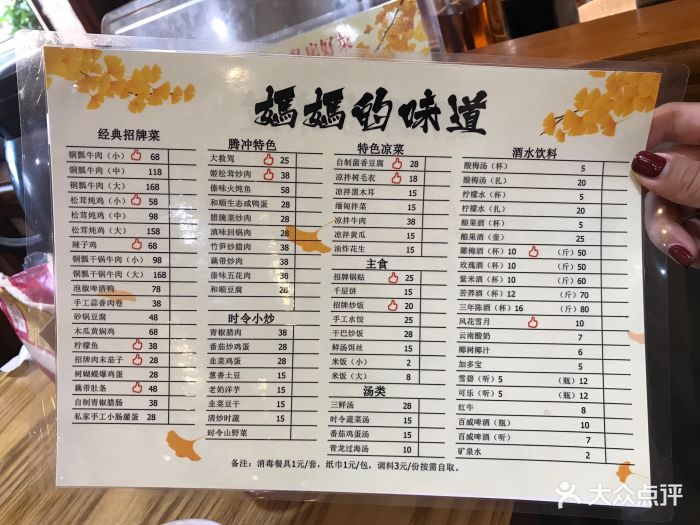 媽媽的味道
经典招牌菜
铜瓢牛肉（小） 68
铜瓢牛肉（中） 118
铜瓢牛肉（大） 168
松茸炖鸡（小） 58
松茸炖鸡（中） 98
松茸炖鸡（大） 158
辣子鸡 68
铜瓢干锅牛肉（小） 98
铜瓢干锅牛肉（大） 168
泡椒啤酒鸭 78
手工蒜香肉卷 38
砂锅豆腐 48
木瓜黄焖鸡 68
柠檬鱼 38
招牌肉末茄子 28
树蝴蝶爆鸡蛋 28
藕带肚条 48
自制青椒腊肠 38
私家手工小肠灌蛋 28
腾冲特色
大救驾 25
姬松茸炒肉 38
傣味火炖鱼 58
和顺生态咸鸭蛋 28
腊腌菜炒肉 28
滇味回锅肉 28
竹笋炒腊肉 38
藕带炒肉 38
傣味五花肉 38
和顺豆腐 28
时令小炒
青椒腊肉 38
番茄炒鸡蛋 28
韭菜鸡蛋 28
葱香土豆 15
老奶洋芋 15
韭菜豆干 15
清炒时蔬 15
时令山野菜
特色凉菜
自制菌香豆腐 28
凉拌树毛衣 18
凉拌黑木耳 15
缅甸拌菜 15
凉拌牛肉 38
凉拌黄瓜 15
油炸花生 15
主食
招牌锅贴 25
千层饼 15
招牌炒饭 20
手工水饺 25
干巴炒饭 28
鲜汤饵丝 15
米饭（小） 2
米饭（大） 8
汤类
三鲜汤 28
时令蔬菜汤 15
番茄鸡蛋汤 15
青龙过海汤 15
酒水饮料
酸梅汤（杯） 5
酸梅汤（扎） 20
柠檬水（杯） 5
柠檬水（扎） 20
酿果酒（杯） 5
酿果酒（壶） 25
雕梅酒（杯）10 （斤）50
玫瑰酒（杯）10 （斤）50
紫米酒（杯）10 （斤）60
苦荞酒（杯）12 （斤）70
三年陈酒（杯）16 （斤）80
风花雪月 10
云南酸奶 7
椰树椰汁 6
加多宝 5
雪碧（听）5 （瓶）12
可乐（听）5 （瓶）12
红牛 8
百威啤酒（瓶） 10
百威啤酒（听） 7
矿泉水 2
备注：消毒餐具1元/套，纸巾1元/包，调料3元/份按需自取。
大众点评